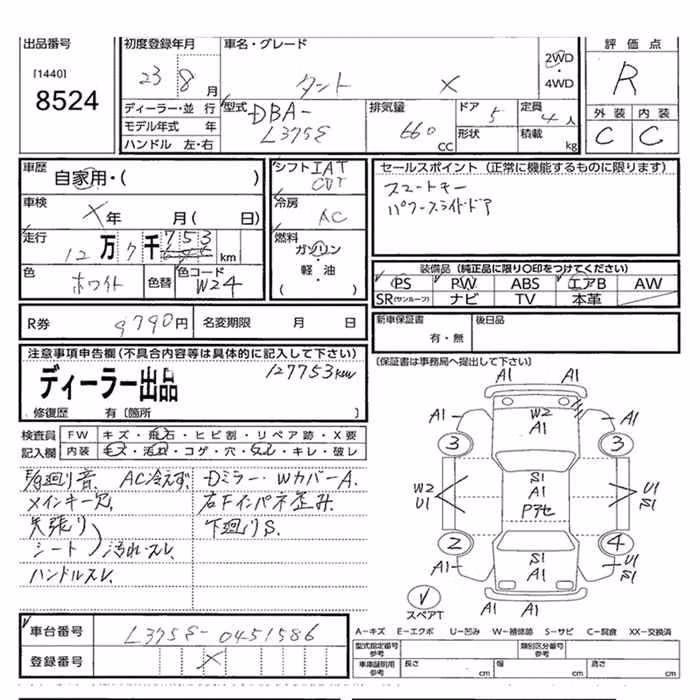 出品番号
[1440]
8524
初度登録年月
23 8 月
車名・グレード
タント X
2WD
・
4WD
評価点
R
外装 内装
C C
ディーラー・並行
モデル年式 年
ハンドル 左・右
型式
DBA-
L375S
排気量
660
CC
ドア 5
形状
定員
4 人
積載
kg
車歴
自家用・( )
車検
X 年 月( 日)
走行
12 万 7 千 753 km
色
ホワイト
色替
色コード
W24
シフト IAT
CVT
冷房
AC
燃料
ガソリン
・
軽・油
( )
セールスポイント (正常に機能するものに限ります)
スマートキー
パワースライドドア
装備品 (純正品に限り〇印をつけてください)
PS PW ABS エアB AW
SR(サンルーフ) ナビ TV 本革
R券 9790円
名変期限 月 日
新車保証書
有・無
後日品
(保証書は事務局へ提出して下さい)
注意事項申告欄(不具合内容等は具体的に記入して下さい)
ディーラー出品
127753km
修復歴 有〔箇所 〕
検査員
記入欄
FW キズ・飛石・ヒビ割・リペア跡・X要
内装 キズ・汚れ・コゲ・穴・スレ・キレ・破レ
廻り音 AC冷えず
メインキー欠
天張り
シート 汚れ・スレ
ハンドルスレ
Dミラー・WカバーA
右Fインパネ歪み
下廻りS
A1 A1
W2
A1
A1 A1
3 3
W2
U1
S1
A1
Pデセ
U1
S1
2 4
A1
S1
A1
U1
S1
A1 A1
スペアT
車台番号 L375S-0451586
登録番号 X
A-キズ E-エクボ U-凹み W-補修跡 S-サビ C-腐食 XX-交換済
型式指定番号
参考
類別区分番号
参考
車庫証明用
参考
長さ cm 幅 cm 高さ cm